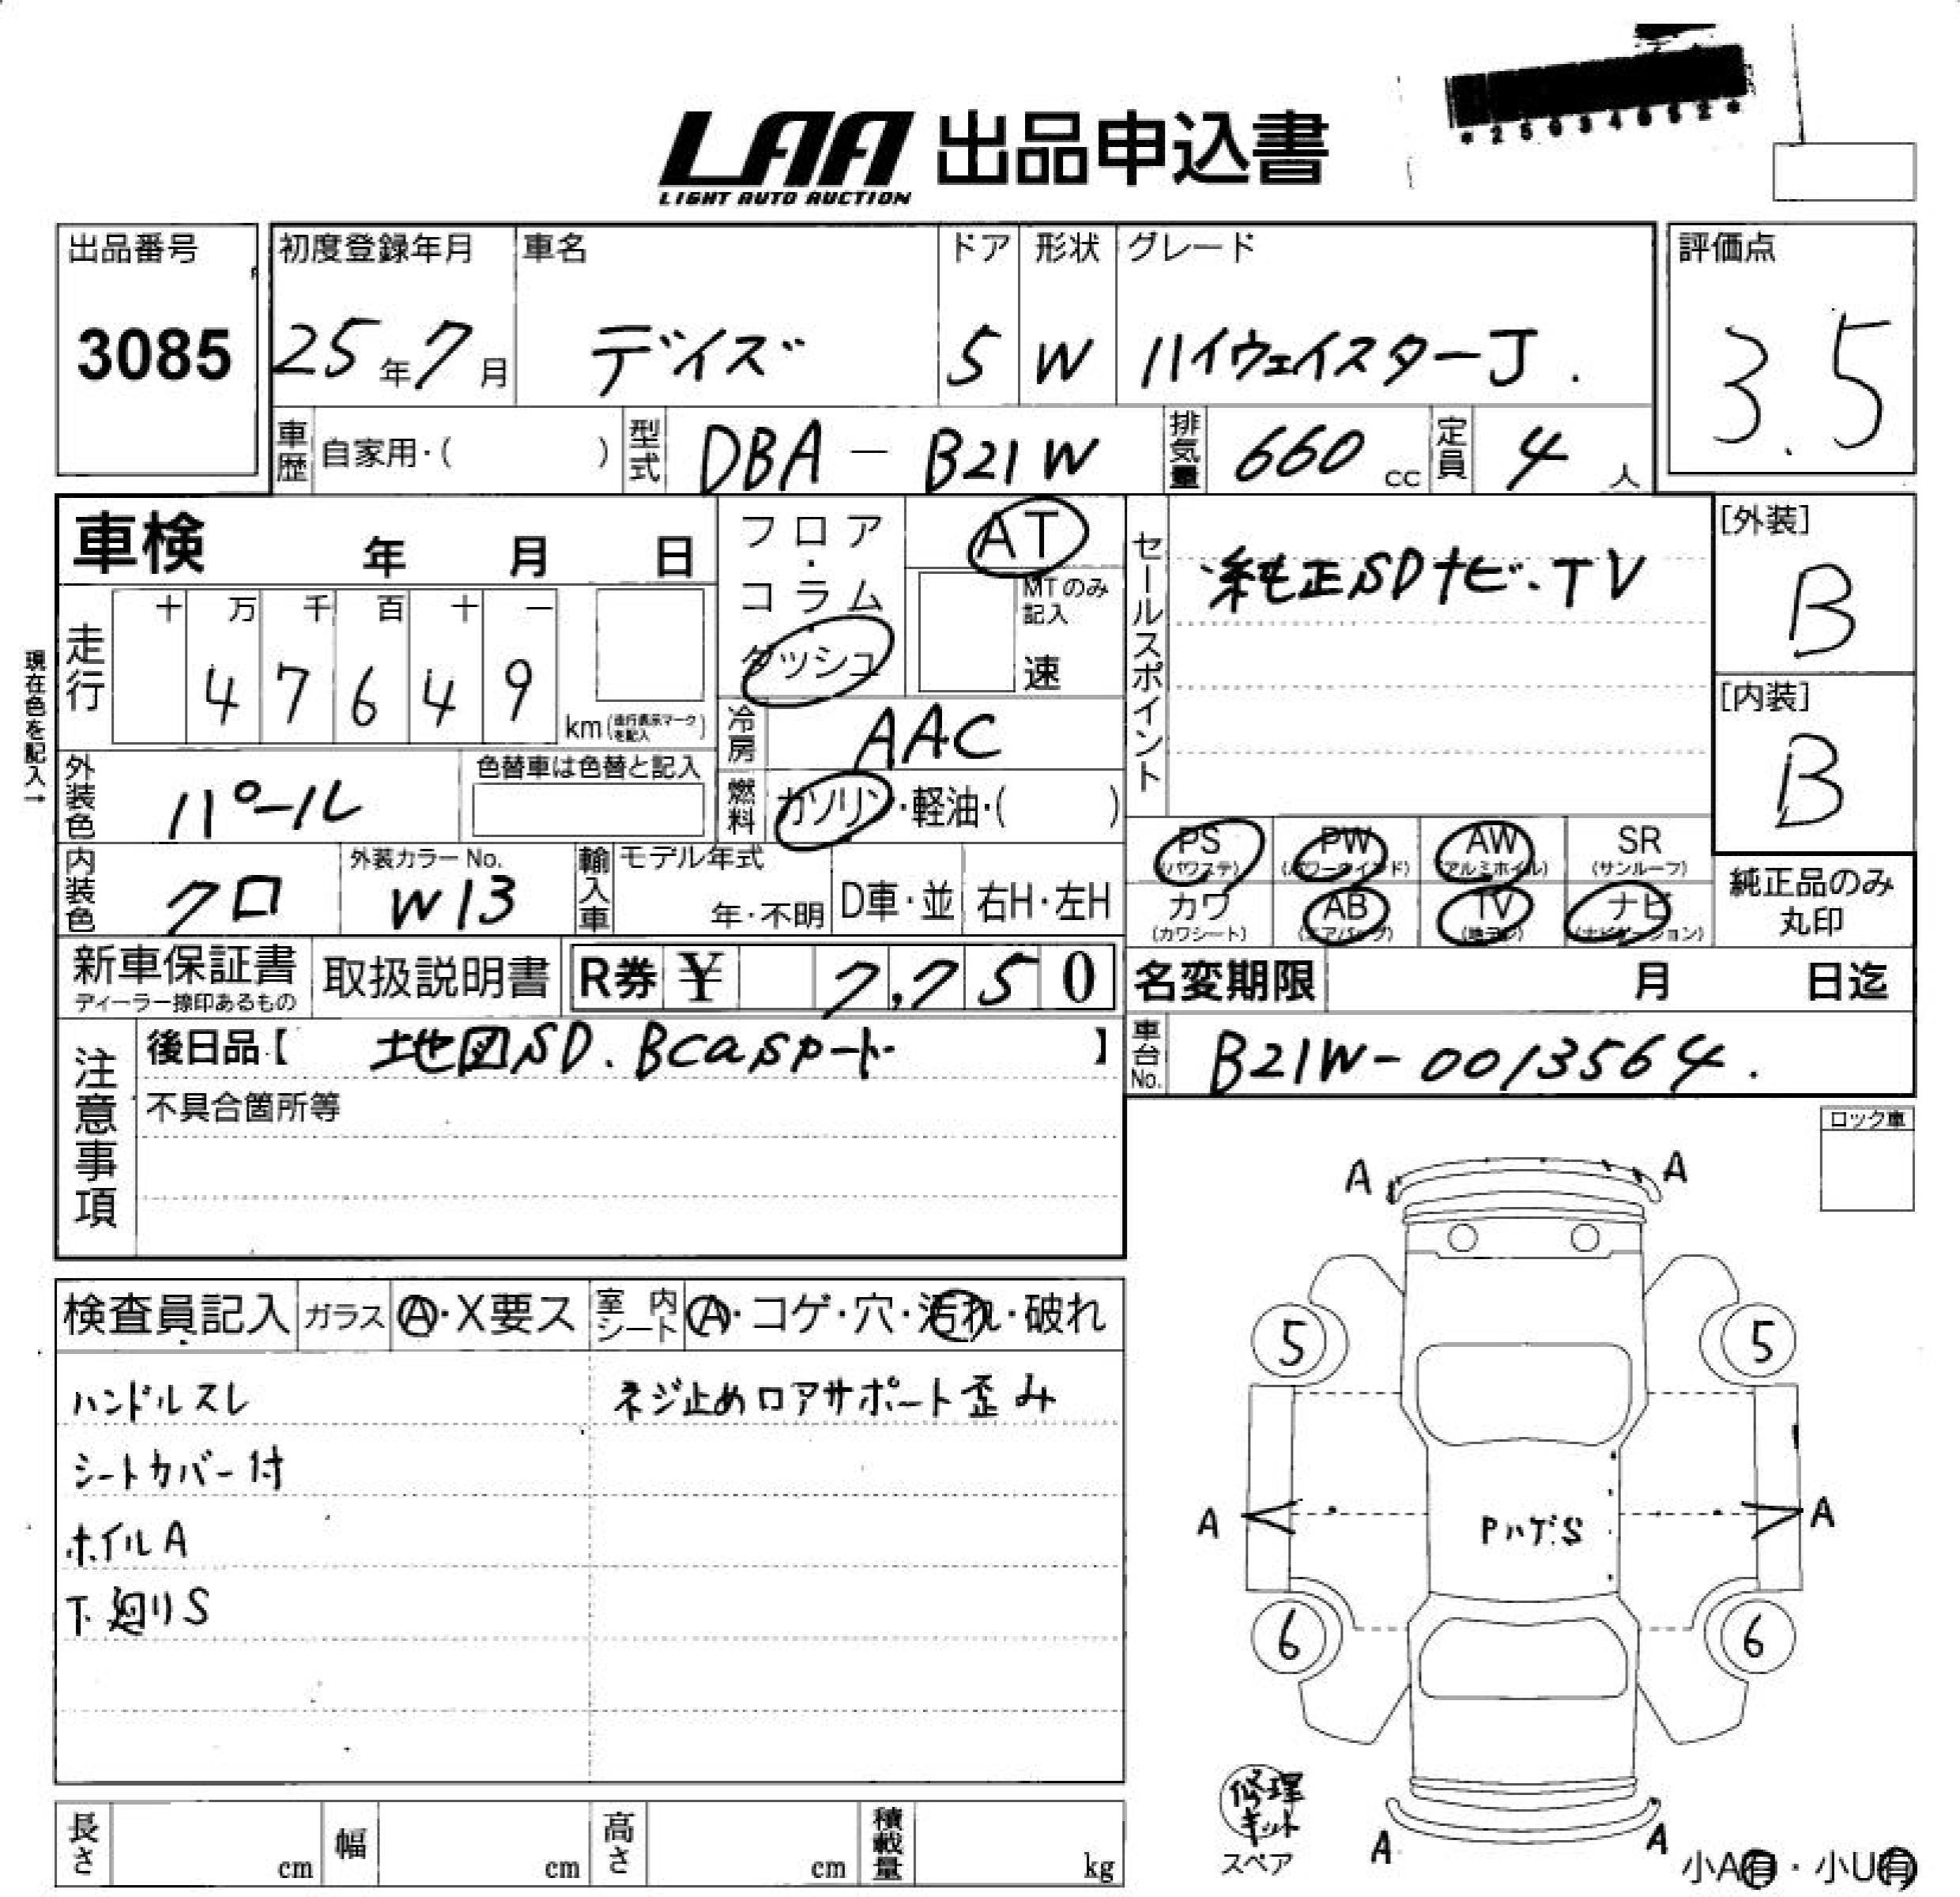 *25034662*
LAA 出品申込書
LIGHT AUTO AUCTION
出品番号 初度登録年月 車名 ドア 形状 グレード 評価点
3085 25年7月 デイズ 5 W ハイウェイスターJ. 3.5
車歴 自家用・( ) 型式 DBA-B21W 排気量 660cc 定員 4人
車検 年 月 日 フロア・コラム ダッシュ AT セールスポイント 純正SDナビ・TV [外装]
B
MTのみ記入
速
現在色を記入→
走行 十 万 千 百 十 一
4 7 6 4 9 km(走行表示マークを記入)
冷房 AAC [内装]
B
外装色 パール 色替車は色替と記入 燃料 ガソリン・軽油・( )
PS(パワステ) PW(パワーウインド) AW(アルミホイル) SR(サンルーフ)
内装色 クロ 外装カラーNo. W13 輸入車 モデル年式 年・不明 D車・並 右H・左H
カワ(カワシート) AB(エアバッグ) TV(地デジ) ナビ(ナビゲーション) 純正品のみ丸印
新車保証書 ディーラー捺印あるもの 取扱説明書 R券 ¥ 7,750 名変期限 月 日迄
注意事項 後日品【 地図SD. Bcas 】 車台No. B21W-0013564.
不具合箇所等
ロック車
検査員記入 ガラス A・X要ス 室内シート A・コゲ・穴・汚れ・破れ
ハンドルスレ ネジ止めロアサポート歪み
シートカバー付
ホイルA
下廻りS
A A
5 5
A PハゲS A
6 6
修理キット
スペア
A A
小A有・小U有
長さ cm 幅 cm 高さ cm 積載量 kg